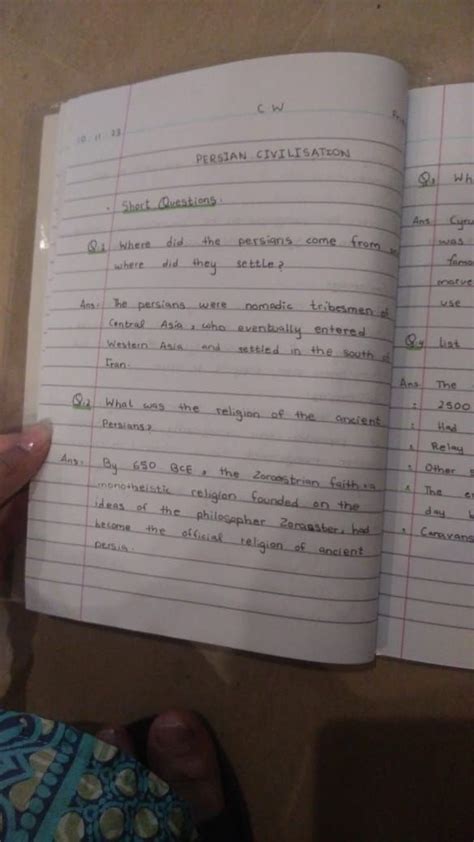 C W
10.11.23
PERSIAN CIVILISATION
Short Questions.
Q.1 Where did the persians come from
where did they settle?
Ans: The persians were nomadic tribesmen of
Central Asia, who eventually entered
Western Asia and settled in the south of
Iran.
Q.2 What was the religion of the ancient
Persians?
Ans: By 650 BCE, the Zoroastrian faith, a
monotheistic religion founded on the
ideas of the philosopher Zoroaster, had
become the official religion of ancient
persia.
Q3 Wh
Ans Cyru
was
famo
use
Q4 List
Ans The
2500
Had
Relay
Other
The e
day
Caravans